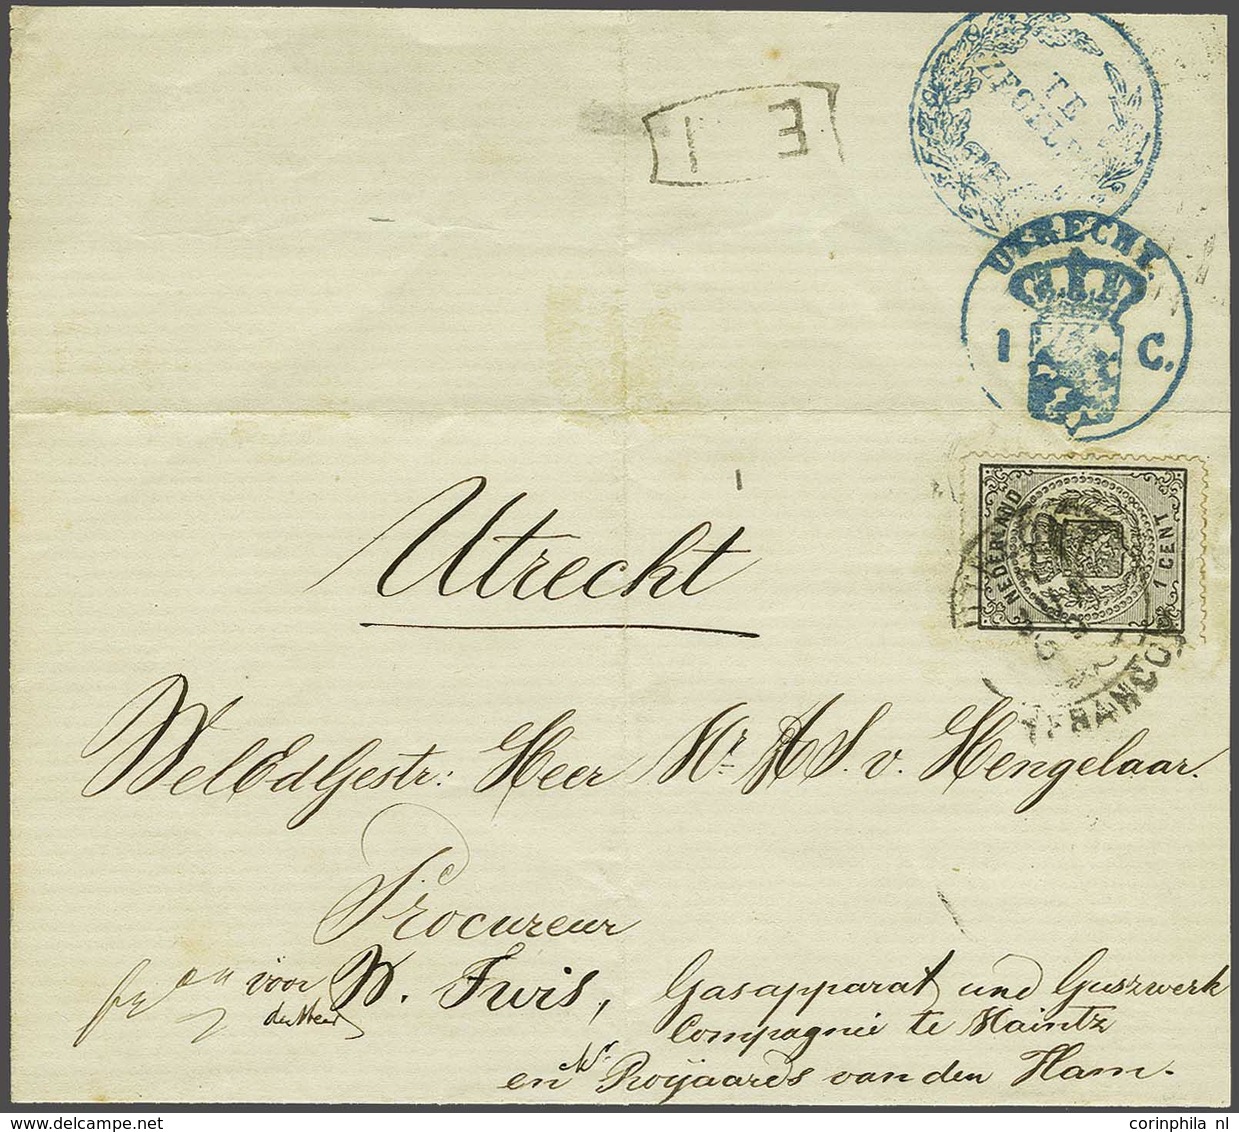 TE
UTRECHT.
1 C.
E 1
NEDERLAND
1 CENT
FRANCO
Utrecht
WelEdGestr: Heer Mr. A S. v. Hengelaar.
Procureur
voor W. Twis, Gasapparat und Guszwerk
den Heer
Compagnie te Maintz
en Mr. Royaards van den Ham.
corinphila nl